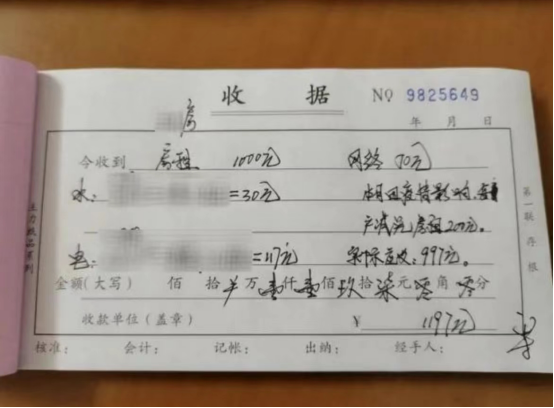 收 据 NO 9825649
房
年 月 日
今收到 房租 1000元 网络 70元
水: =30元 本月因疫情影响,
产减免房租200元。
电: =117元 实际应收:997元。
金额(大写) 佰 拾 万 壹仟 壹佰 玖拾 柒元 零角 零分
收款单位(盖章) ¥ 1197元
核准: 会计: 记帐: 出纳: 经手人:
第一联 存根